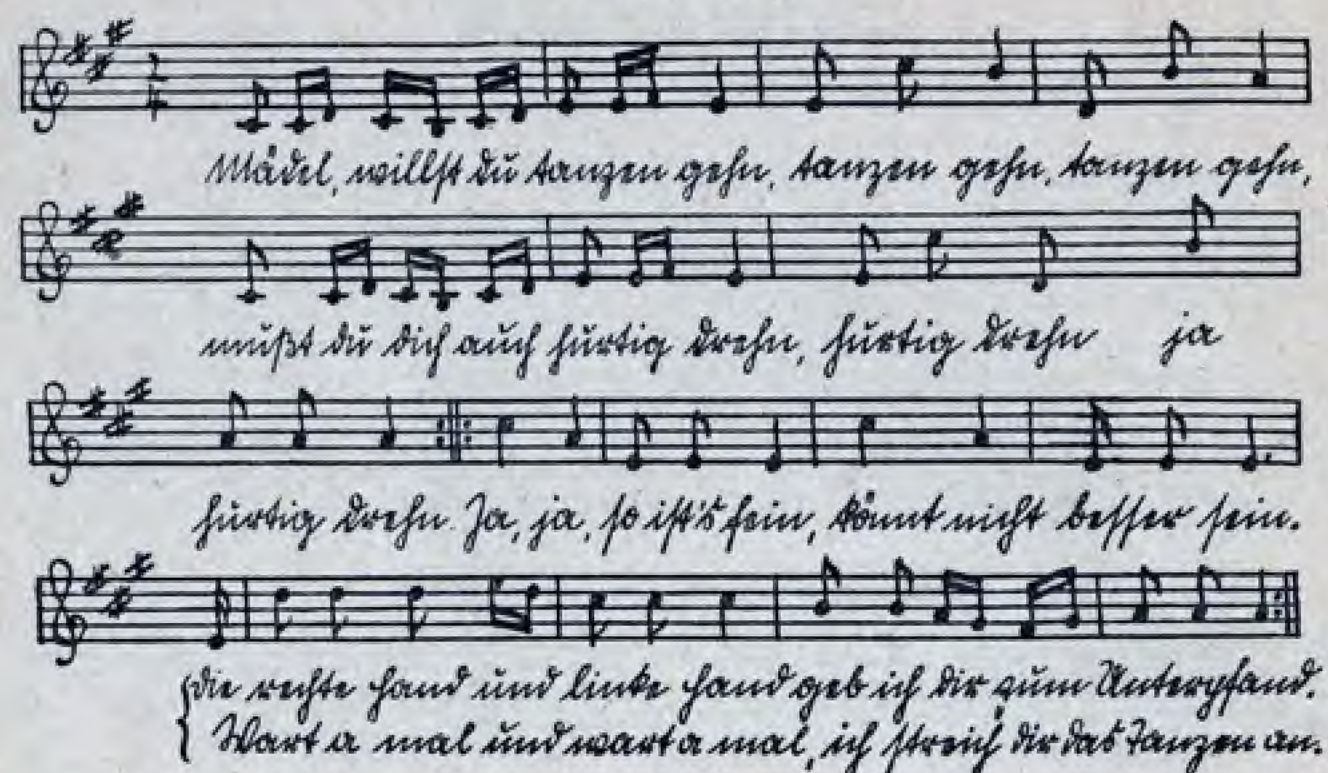 Mädel, willst du tanzen gehn, tanzen gehn, tanzen gehn,
mußt du dich auch hurtig drehn, hurtig drehn ja
hurtig drehn. Ja, ja, so ist's fein, könnt nicht besser sein.
Die rechte Hand und linke Hand geb ich dir zum Unterpfand.
Wart a mal und wart a mal, ich streich dir das Tanzen an.